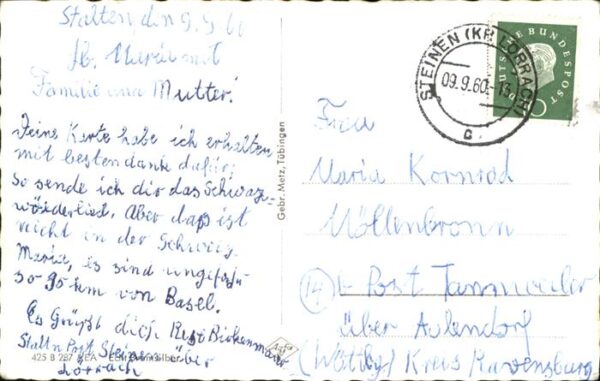 Stalten, den 9.9.60
lb. Maria mit
Familie und Mutter!
Deine Karte habe ich erhalten
mit besten dank dafür,
so sende ich dir das Schwarz-
wälderlied. Aber daß ist
nicht in der Schweiz
Maria, es sind ungefähr
so 90 km von Basel.
Es Grüßt dich
Post Steinen über
Lörrach
425 B 287
Gebr. Metz, Tübingen
STEINEN (KR LÖRRACH)
09.9.60.-13
c
DEUTSCHE BUNDESPOST
Frau
Maria Kornrod
Möllenbronn
(14b) Post Tannweiler
über Aulendorf
(Wttbg) Kreis Ravensburg